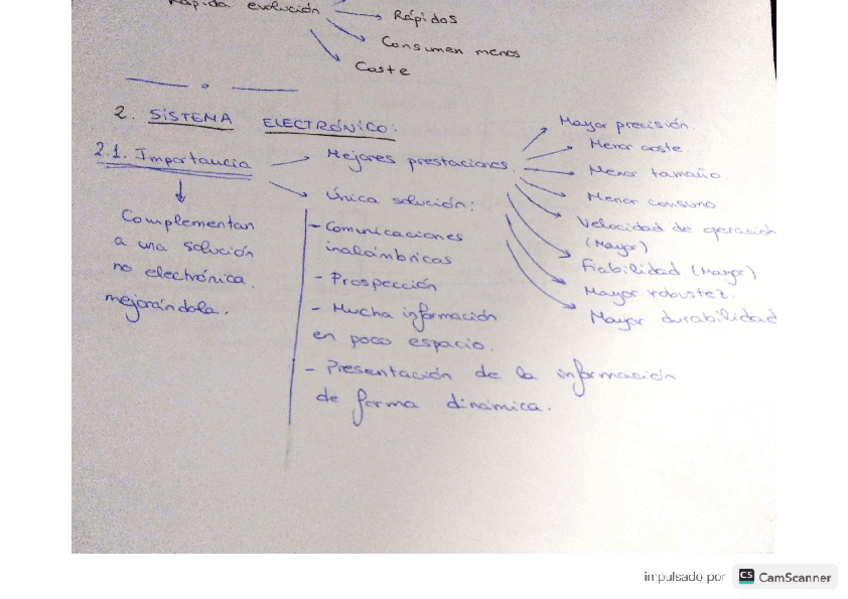 Rápida evolución
Rápidos
Consumen menos
Coste
2. SISTEMA ELECTRÓNICO:
2.1. Importancia
Complementan
a una solución
no electrónica.
mejorándola.
Mejores prestaciones.
Mayor precisión.
Menor coste.
Menor tamaño
Menor consumo
Velocidad de operación
(Mayor)
Fiabilidad (Mayor)
Mayor robustez.
Mayor durabilidad
Única solución:
- Comunicaciones
inalámbricas
- Prospección
- Mucha información
en poco espacio.
- Presentación de la información
de forma dinámica.
impulsado por CS CamScanner